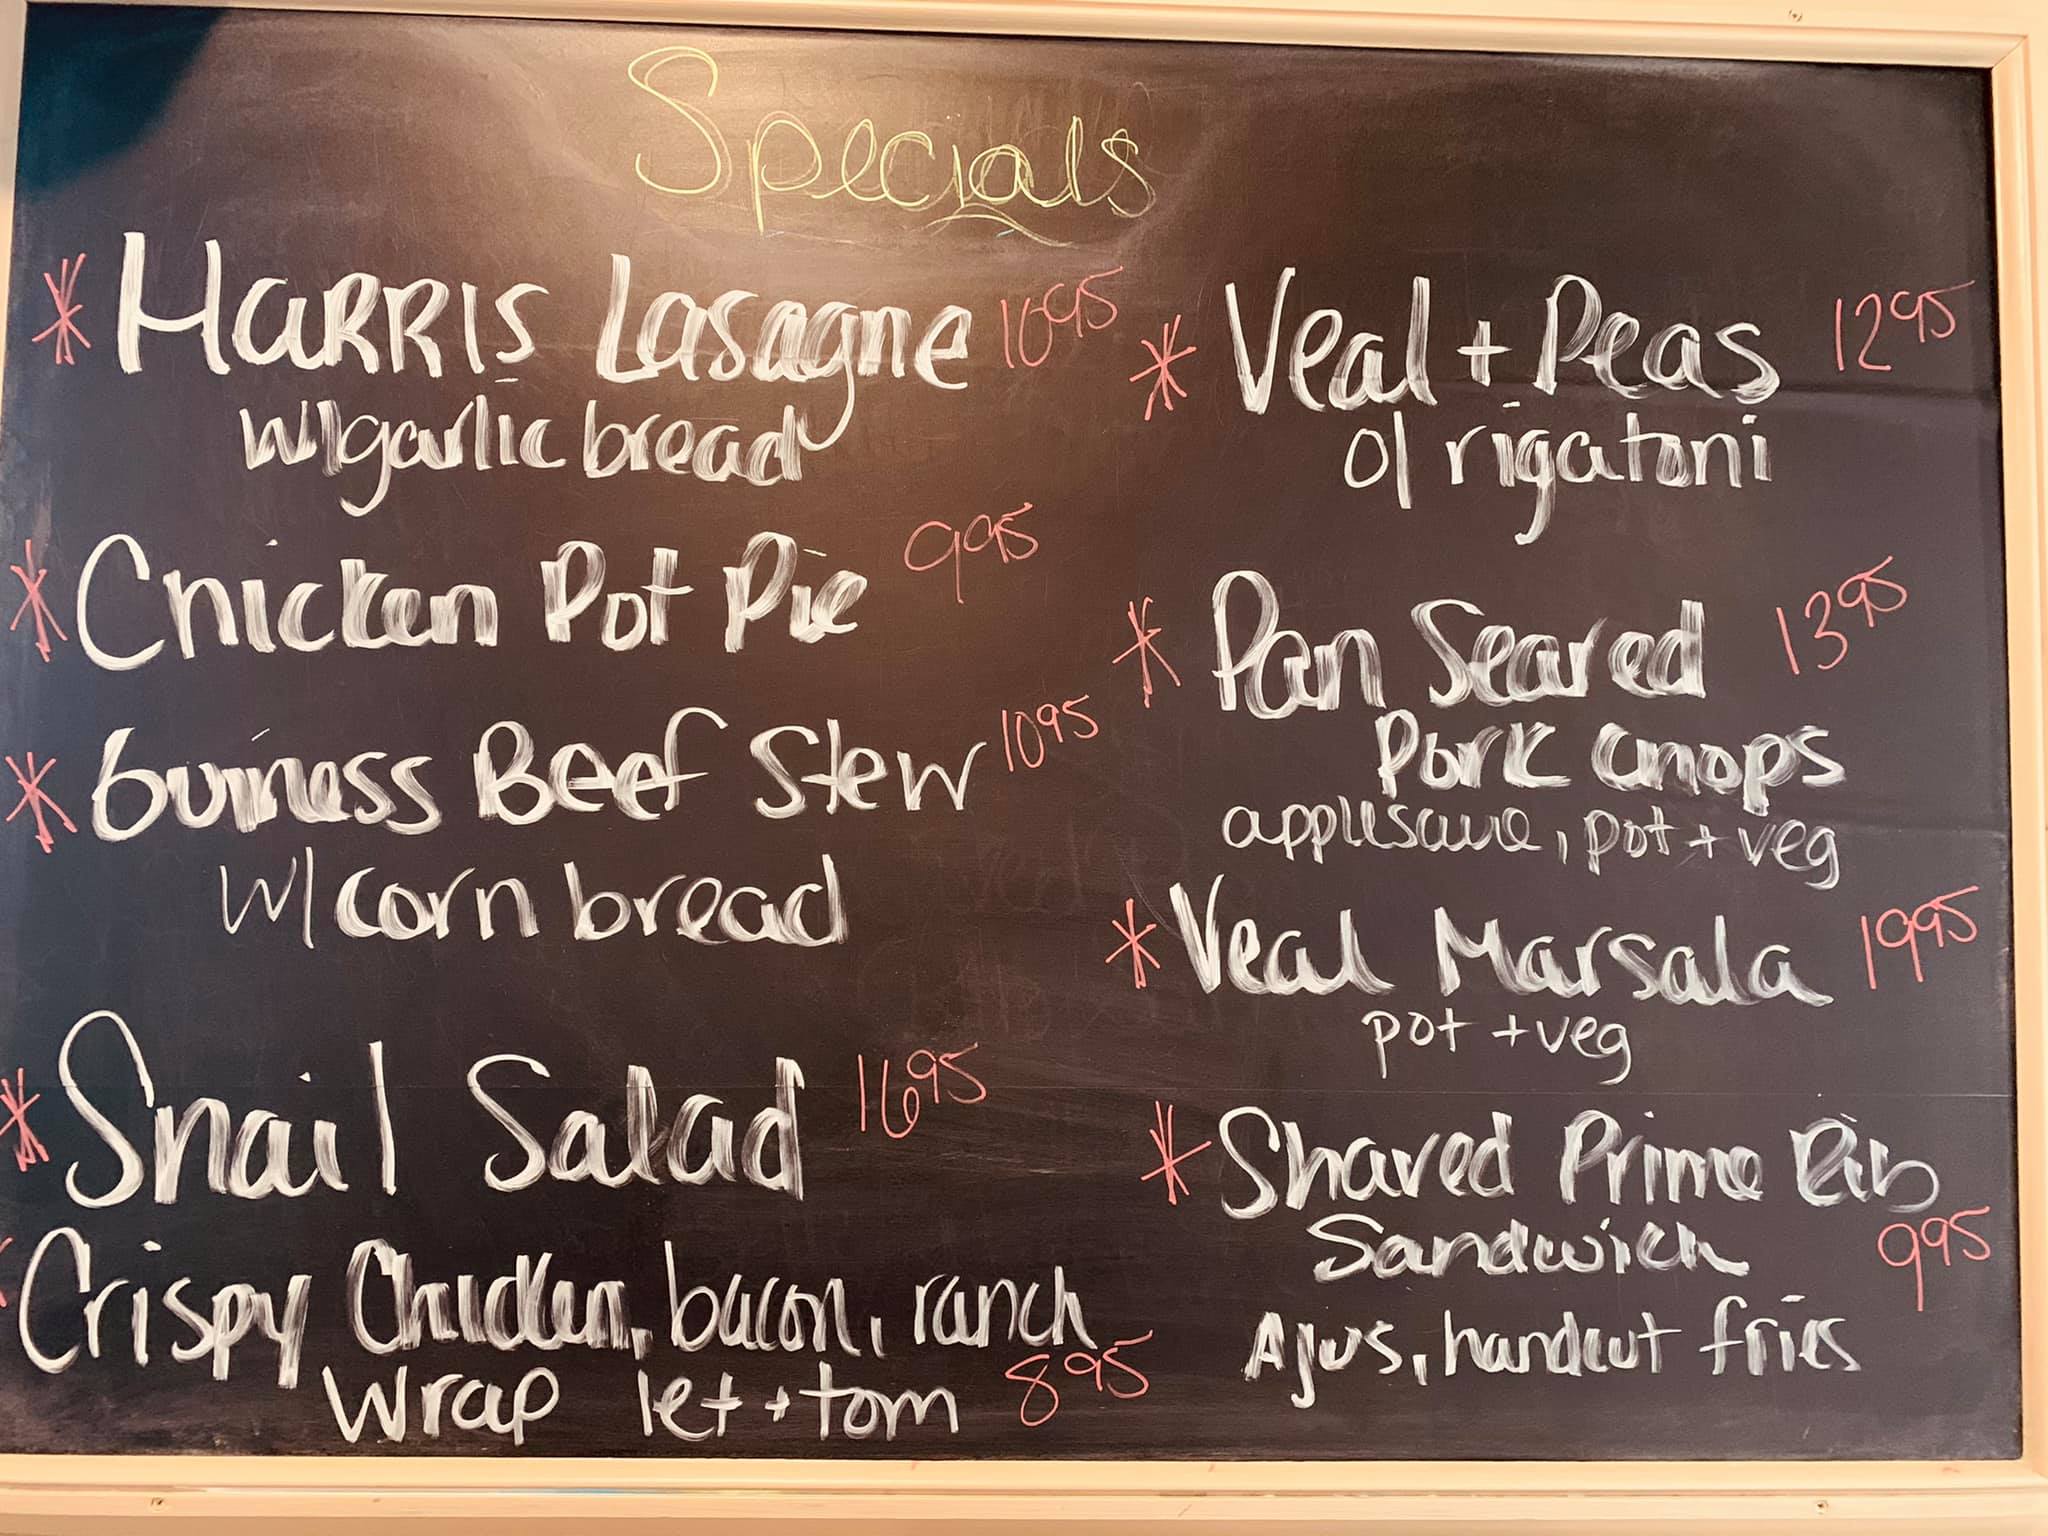 Specials
* HARRIS Lasagne 10 95
w/garlic bread
* Chicken Pot Pie 9 95
* Guiness Beef Stew 10 95
w/ corn bread
* Snail Salad 16 95
Crispy Chicken, bacon, ranch
Wrap let + tom 8 95
* Veal + Peas 12 95
o/ rigatoni
* Pan Seared 13 95
Pork Chops
applesauce, pot + veg
* Veal Marsala 19 95
pot + veg
* Shaved Prime Rib
Sandwich 9 95
Ajus, handcut fries